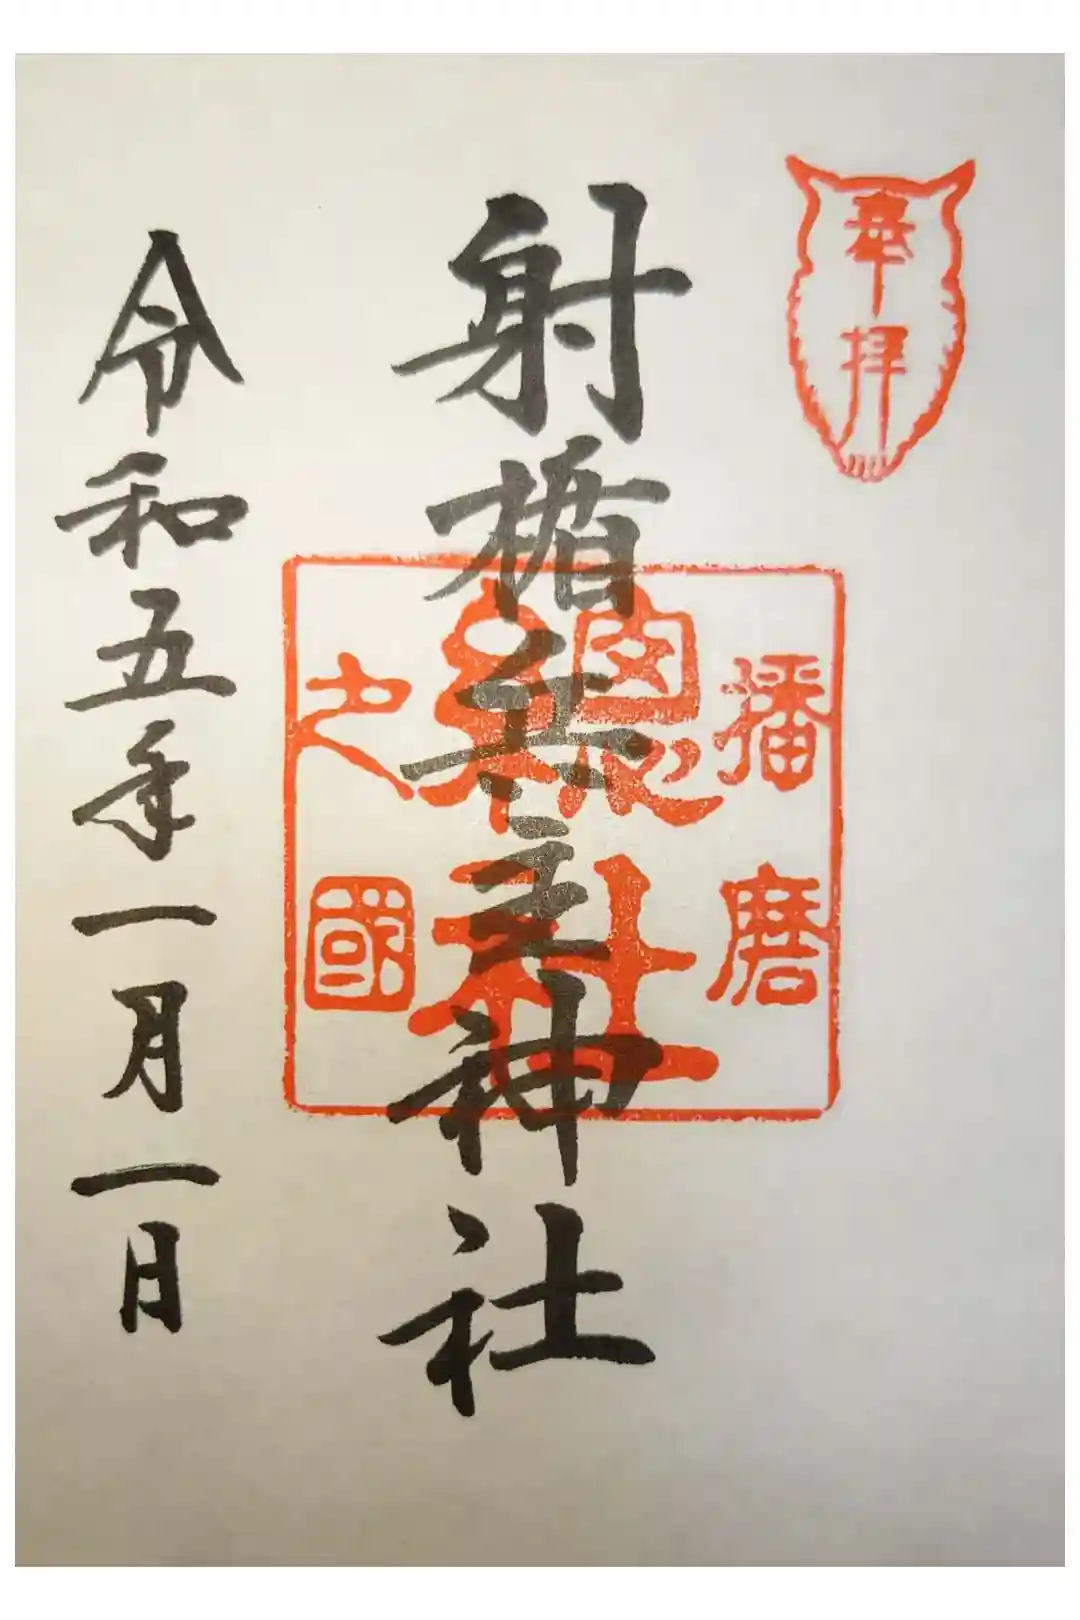 奉拝
射楯兵主神社
播磨
總社
之國
令和五年一月一日